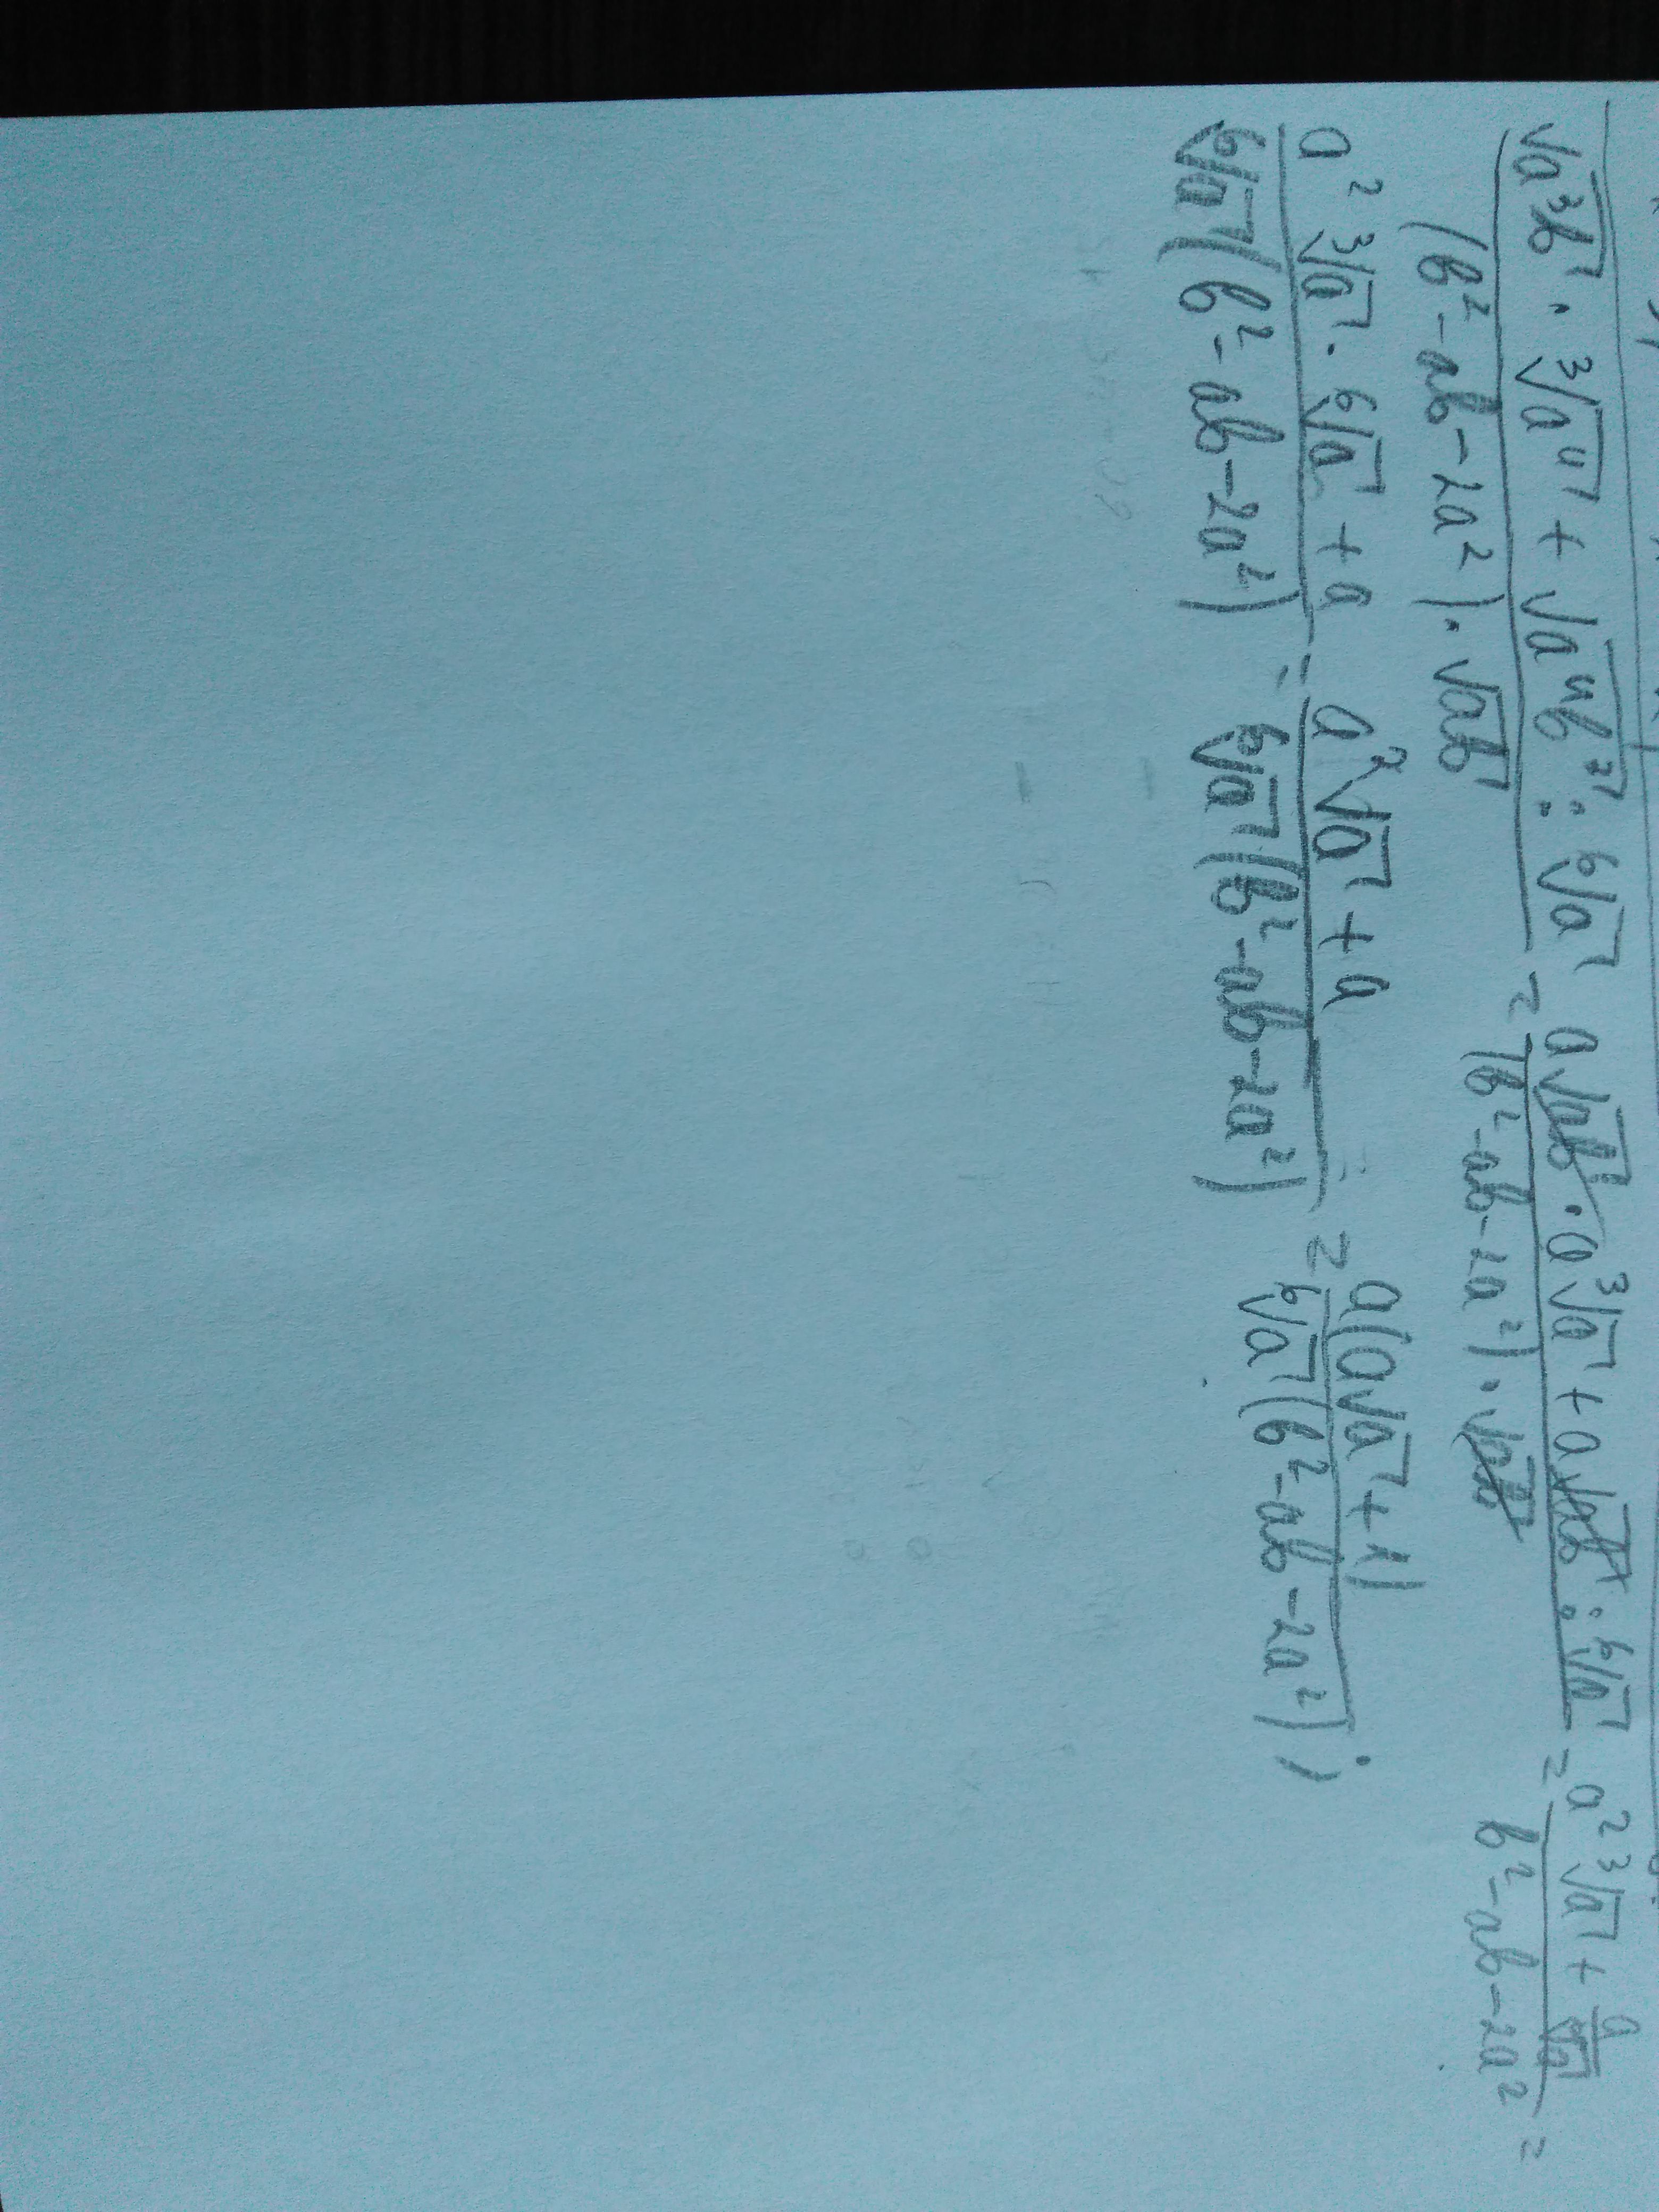 √(a³b) · ³√(a⁴) + √(a⁴b³) : ⁶√a / (b² - ab - 2a²) · √(ab) = a√(ab) · a³√a + a√(ab) : ⁶√a / (b² - ab - 2a²) · √(ab) = a² ³√a + a/⁶√a / b² - ab - 2a² =
a² ³√a · ⁶√a + a / ⁶√a (b² - ab - 2a²) = a²√a + a / ⁶√a (b² - ab - 2a²) = a(a√a + 1) / ⁶√a (b² - ab - 2a²) ;